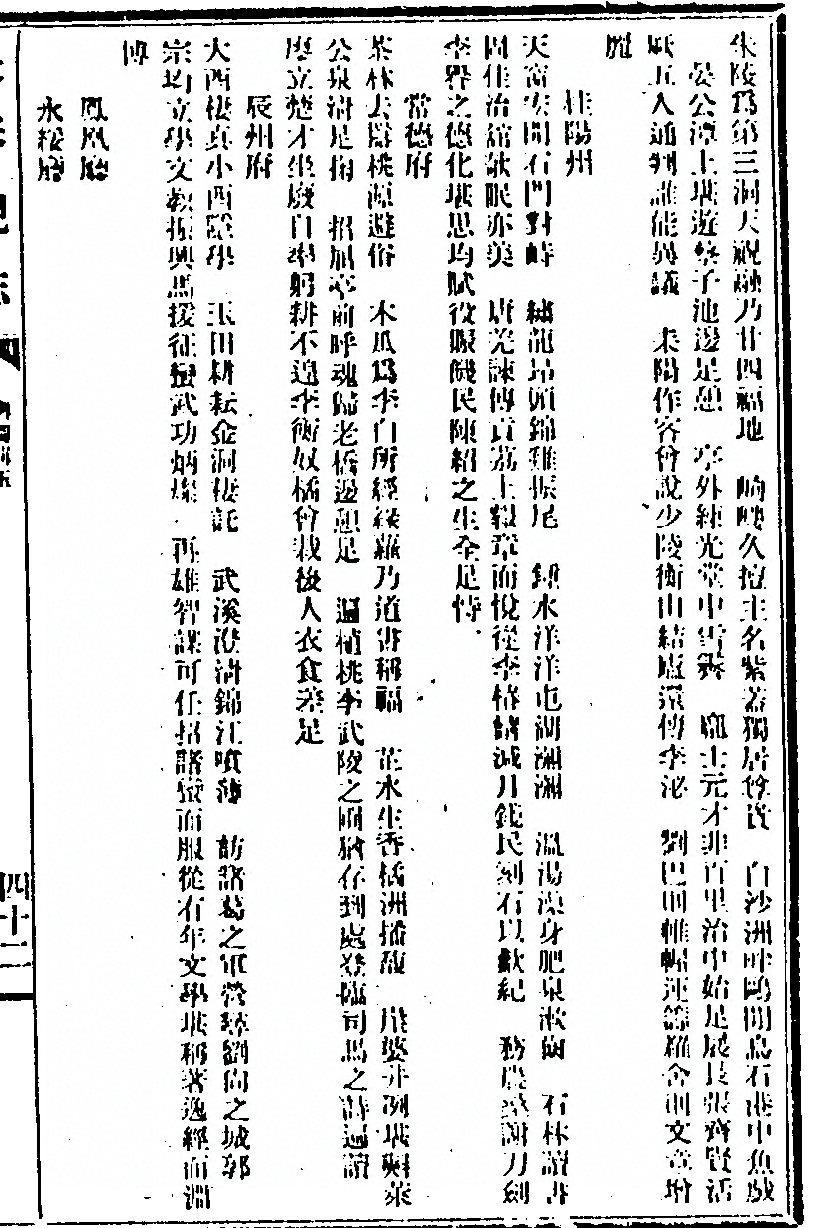 朱陵爲第三洞天祝融乃廿四福地　岣嶁久擅主名紫蓋獨居尊貴　白沙洲畔鷗閒烏石港中魚戲
晏公潭上堪遊蔡子池邊是憩　亭外練光堂中雪霽　龐士元才非百里治中始足展長張齊賢活
獄五人通判誰能異議　耒陽作客曾說少陵衡山結廬還傳李泌　劉巴則帷幄運籌羅含則文章增
麗
桂陽州
天窗宏開石門對峙　繡龍昂頭錦雞振尾　鍾水洋洋屯湖瀰瀰　溫湯澡身肥泉漱齒　石林讀書
固佳治舘欹眠亦美　唐羌諫傳貢荔上報章而悅從李椿請減月錢民刻石以歡紀　務農桑謝刀劍
李界之德化堪思均賦役賑饑民陳紹之生全足恃
常德府
茶林去醫桃源避俗　木瓜爲李白所經綠蘿乃道書稱福　芷水生香橘洲播馥　崔婆井冽堪㪺萊
公泉清足掬　招屈亭前呼魂歸老橋邊憩足　遍植桃李武陵之園猶存到處登臨司馬之詩過讀
應立楚才坐廢自牽躬耕不遑李衡奴橘曾栽後人衣食差足
辰州府
大酉棲真小酉隱學　玉田耕耘金洞棲託　武溪澄清錦江噴薄　訪諸葛之軍營經劉尙之城郭
宗均立學文教振興馬援征蠻武功炳燦　再雄智謀可任招諸蠻而服從石年文學堪稱著逸經而淵
博
鳳凰廳
永綏廳
四十二